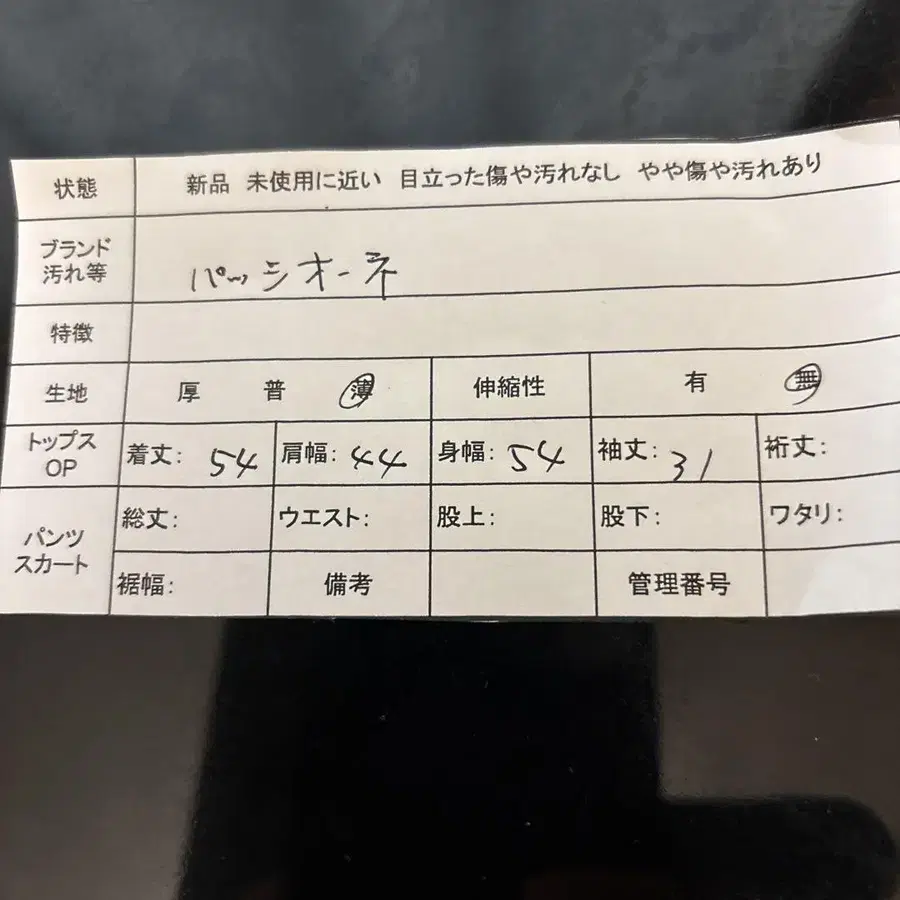 状態 新品 未使用に近い 目立った傷や汚れなし やや傷や汚れあり
ブランド
汚れ等 パッシオーネ
特徴
生地 厚 普 薄 伸縮性 有 無
トップス
OP 着丈: 54 肩幅: 44 身幅: 54 袖丈: 31 裄丈:
パンツ
スカート
総丈: ウエスト: 股上: 股下: ワタリ:
裾幅: 備考 管理番号